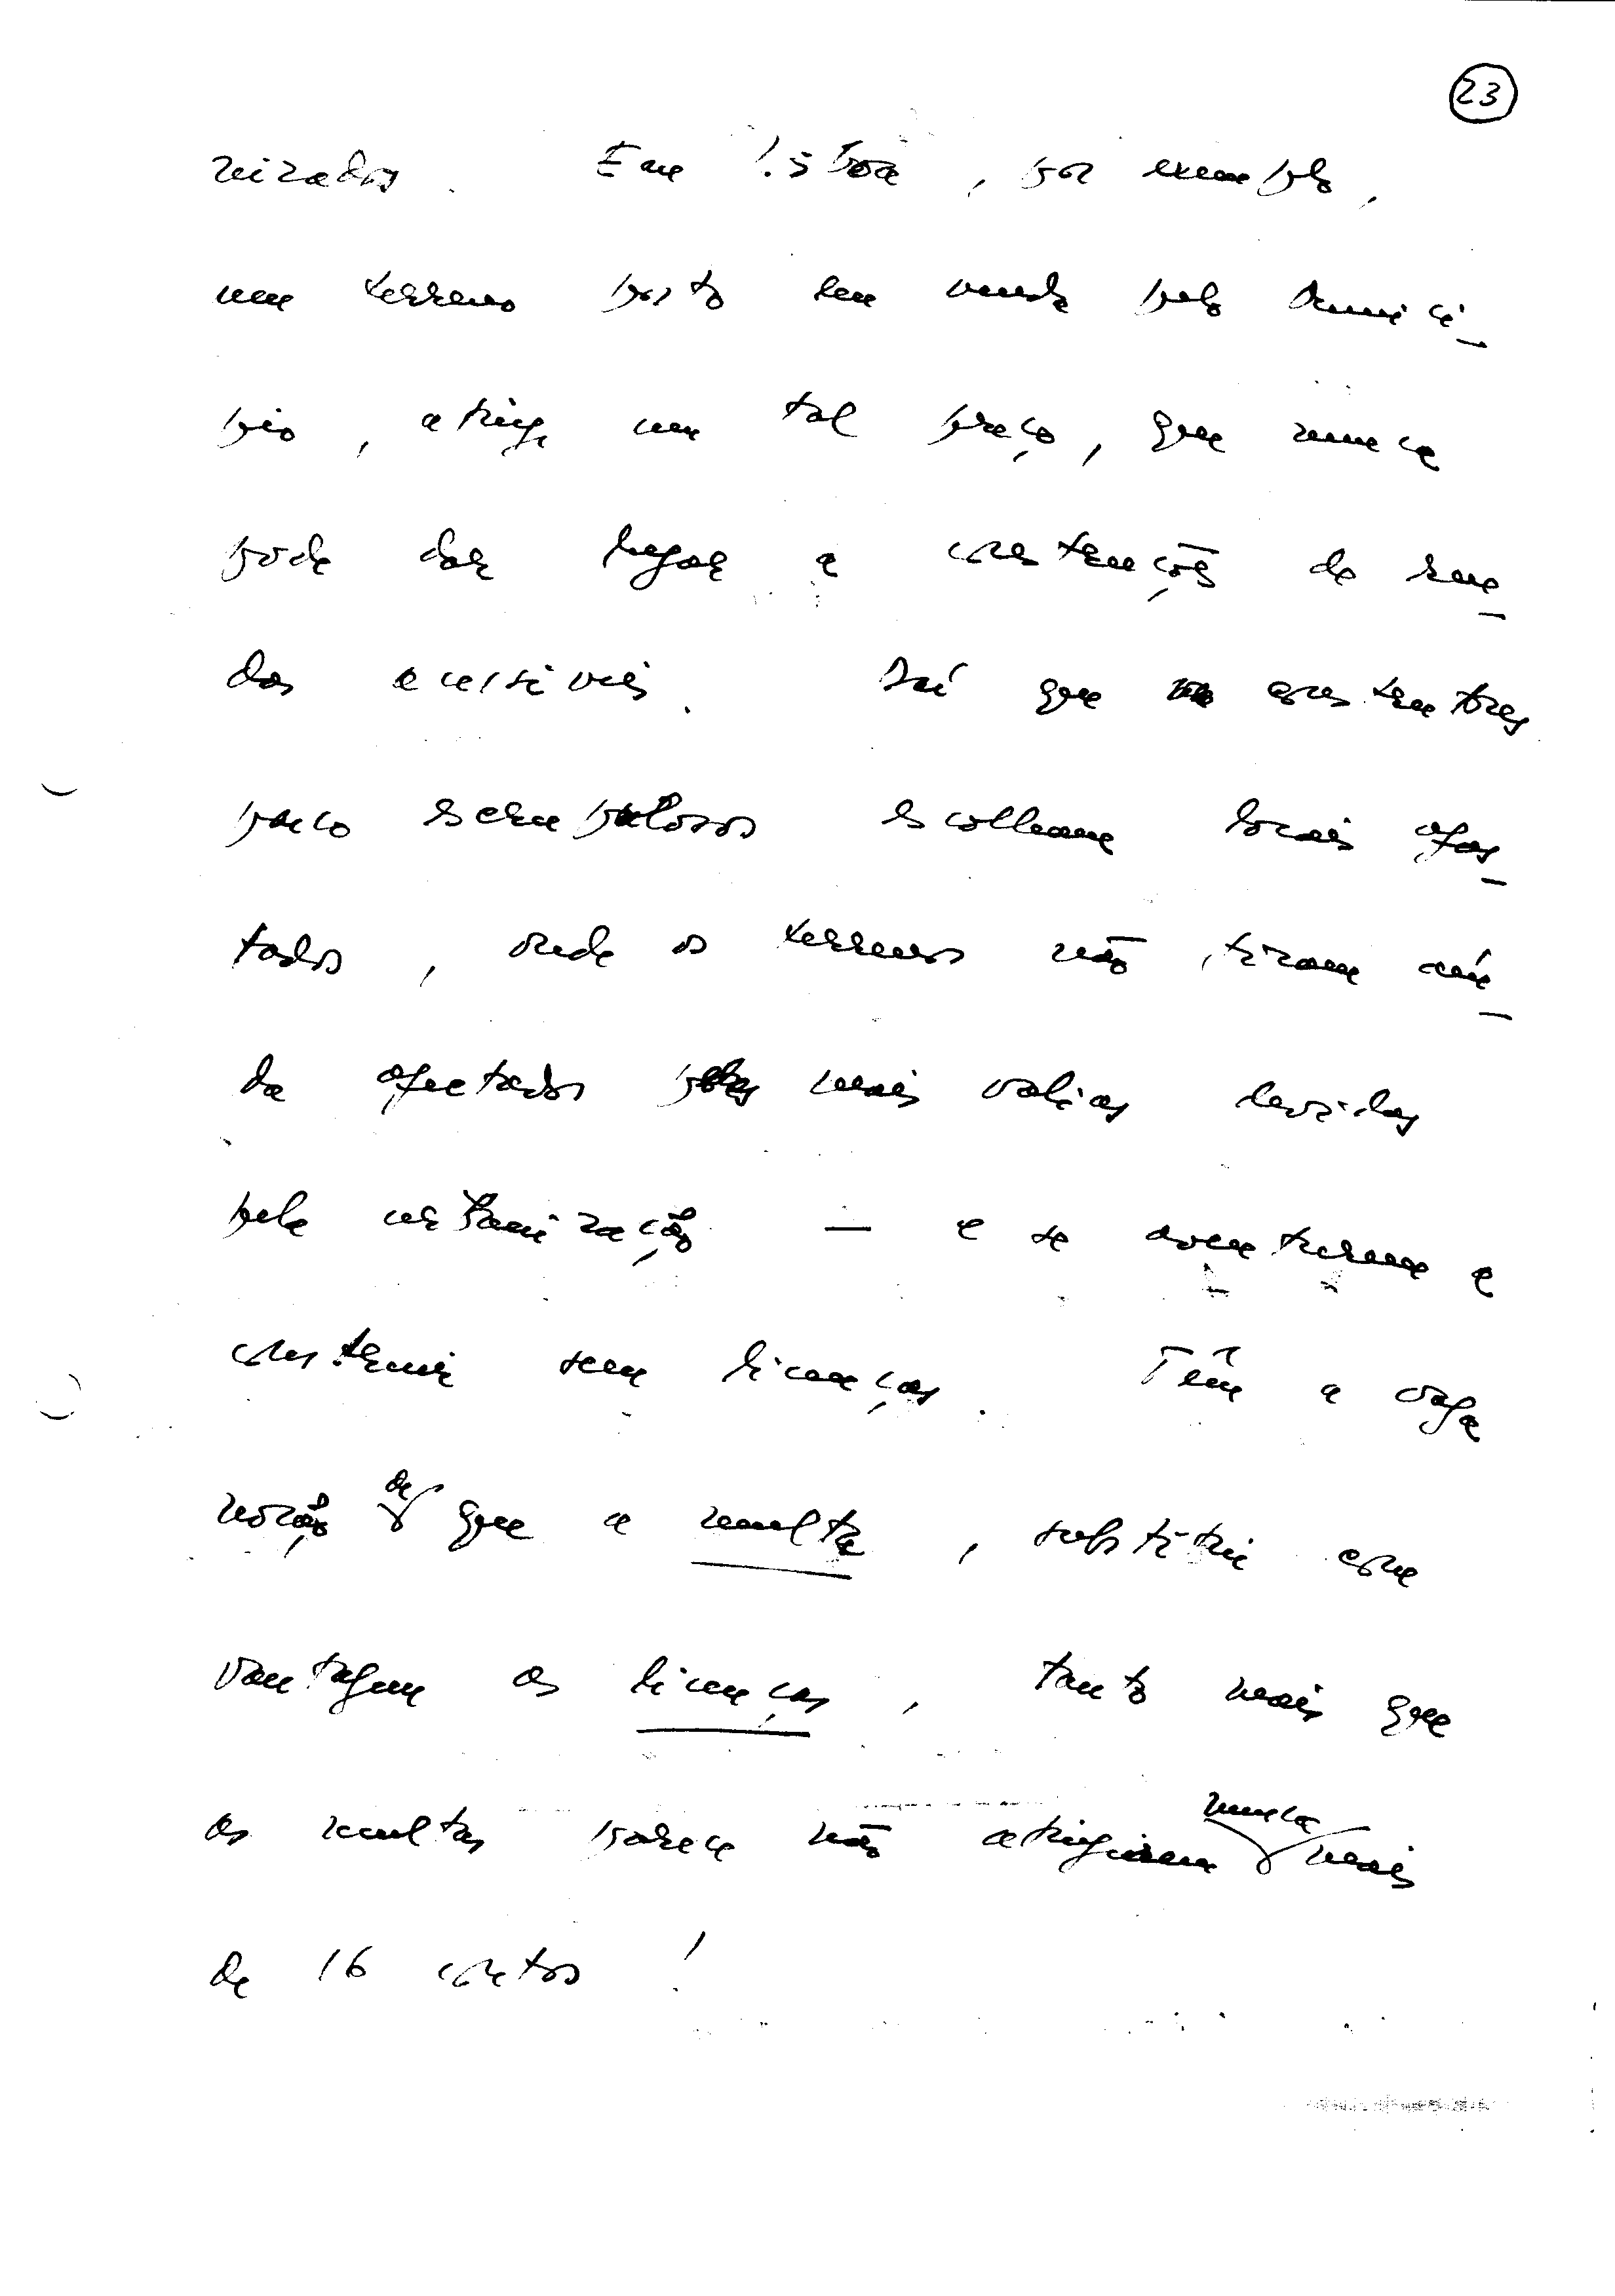 23
nizados. Em Lisboa, por exemplo,
um terreno posto em venda pelo Municí-
pio, atinge um tal preço, que nunca
pode dar lugar a construções de ren-
das acessíveis. Daí que construtores
pouco escrupulosos escolham locais afas-
tados, onde os terrenos não foram ain-
da afectados pelas mais valias devidas
pela urbanização — e se aventurem a
construir sem licenças. Têm a vaga
noção de que a multa, substitui com
vantagem as licenças, tanto mais que
as multas parece não atingirem nunca mais
de 16 contos!